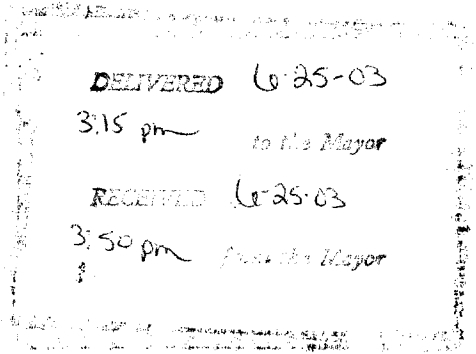 DELIVERED 6-25-03
3:15 pm to the Mayor
RECEIVED 6-25-03
3:50 pm from the Mayor